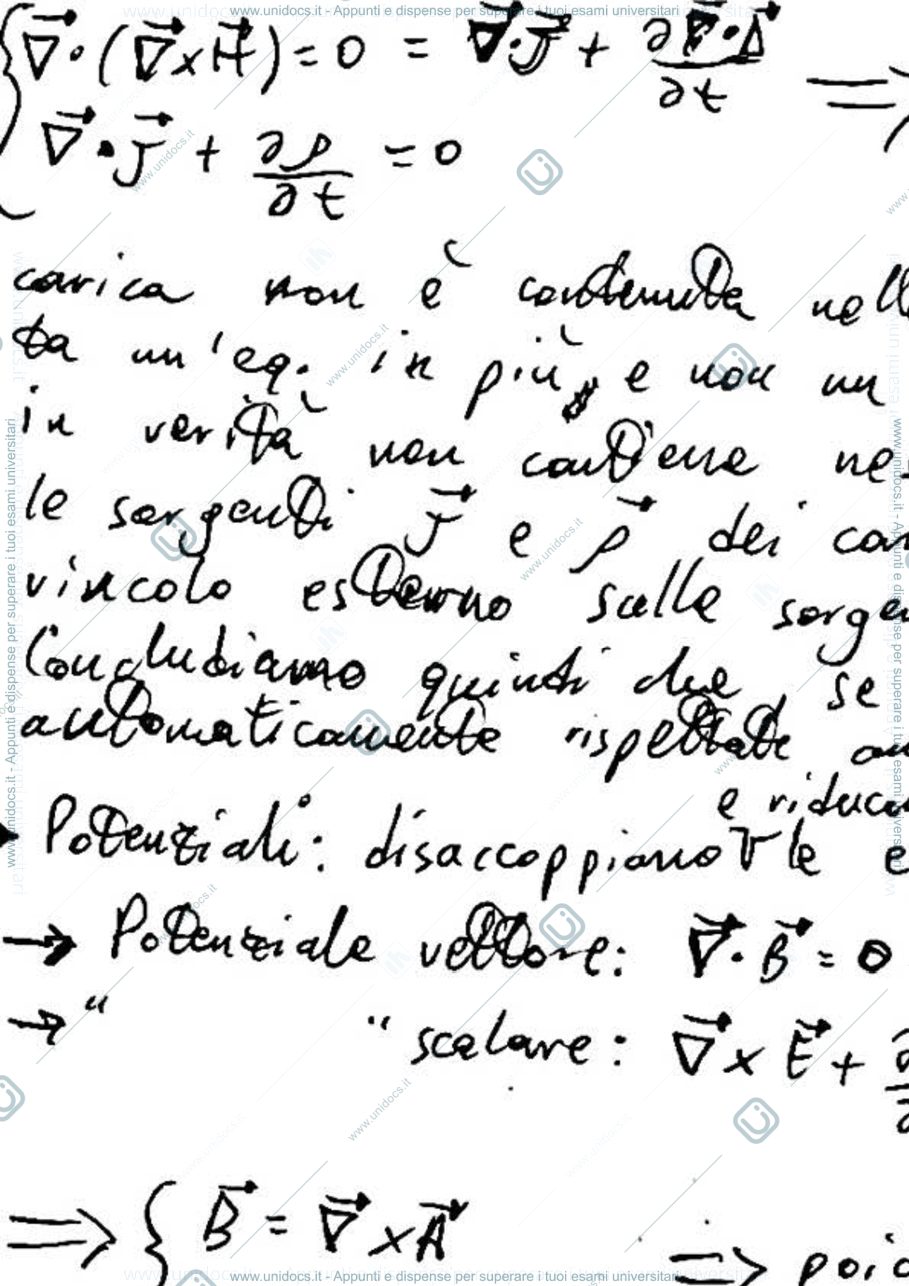 www.unidocs.it - Appunti e dispense per superare i tuoi esami universitari
∇⃗·(∇⃗×H⃗)=0 = ∇⃗·J⃗ + ∂∇⃗·D⃗/∂t ⟹
∇⃗·J⃗ + ∂ρ/∂t = 0
carica non è contenuta nell
ta un'eq. in più, e non un
in verità non contiene nes
le sorgenti J⃗ e ρ⃗ dei cam
vincolo esterno sulle sorge
Concludiamo quindi che se
automaticamente rispettate
e riduci
Potenziali: disaccoppiamo le e
→ Potenziale vettore: ∇⃗·B⃗ = 0
→ " " scalare: ∇⃗×E⃗ + ∂
⟹ { B⃗ = ∇⃗×A⃗
⟹ poic
www.unidocs.it - Appunti e dispense per superare i tuoi esami universitari